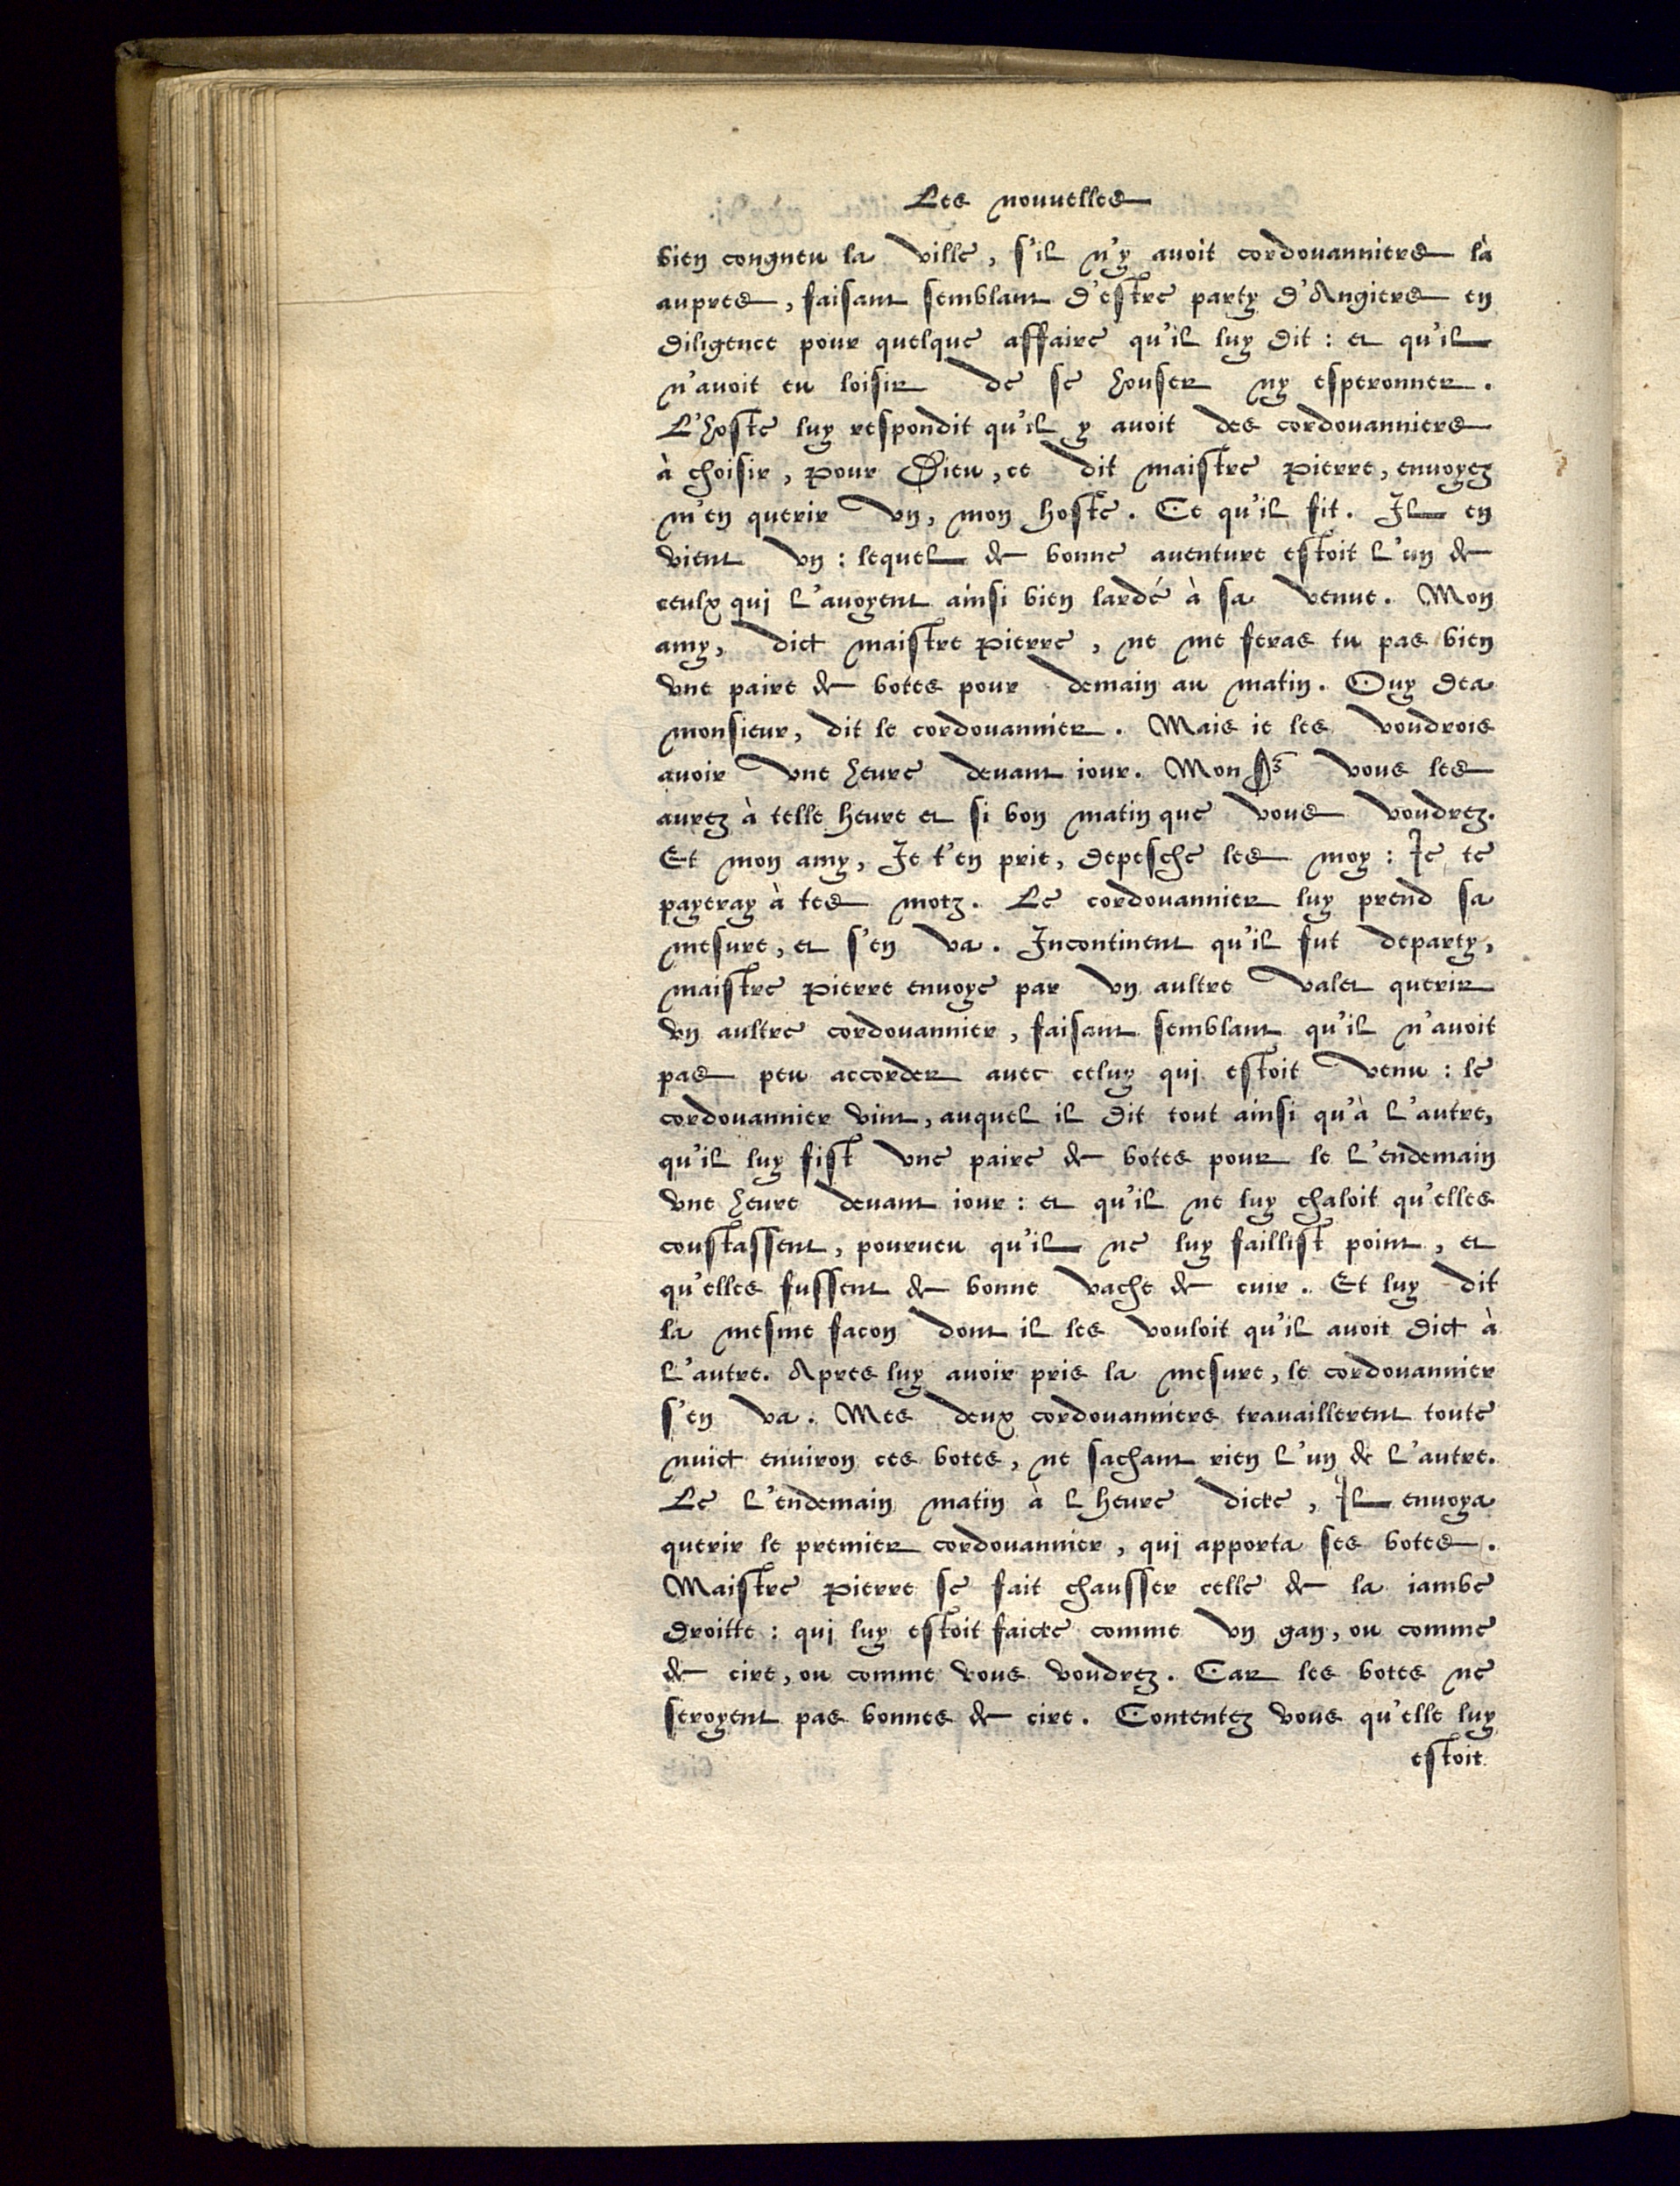 Les nouuelles
bien congneu la ville, s'il n'y auoit cordouanniers là
aupres, faisant semblant d'estre party d'Angiers en
diligence pour quelque affaire qu'il luy dit : et qu'il
n'auoit eu loisir de se houser ny esperonner.
L'hoste luy respondit qu'il y auoit des cordouanniers
à choisir, pour Dieu, ce dit maistre pierre, enuoyez
m'en querir vn, mon hoste. Ce qu'il fit. Il en
vient vn : lequel de bonne auenture estoit l'un de
ceulx qui l'auoyent ainsi bien lardé à sa venue. Mon
amy, dict maistre pierre, ne me feras tu pas bien
vne paire de botes pour demain au matin. Ouy dea
monsieur, dit le cordouannier. Mais ie les voudrois
auoir vne heure deuant iour. Mon Sr vous les
aurez à telle heure et si bon matin que vous voudrez.
Et mon amy, Je t'en prie, depesche les moy : Je te
payeray à tes motz. Le cordouannier luy prend sa
mesure, et s'en va. Incontinent qu'il fut departy,
maistre pierre enuoye par vn aultre valet querir
vn aultre cordouannier, faisant semblant qu'il n'auoit
pas peu accorder auec celuy qui estoit venu : le
cordouannier vint, auquel il dit tout ainsi qu'à l'autre,
qu'il luy fist vne paire de botes pour le l'endemain
vne heure deuant iour : et qu'il ne luy chaloit qu'elles
coustassent, pourueu qu'il ne luy faillist point, et
qu'elles fussent de bonne vache de cuir. Et luy dit
la mesme facon dont il les vouloit qu'il auoit dict à
l'autre. Apres luy auoir pris la mesure, le cordouannier
s'en va. Mes deux cordouanniers trauaillerent toute
nuict enuiron ces botes, ne sachant rien l'un de l'autre.
Le l'endemain matin à l heure dicte, Il enuoya
querir le premier cordouannier, qui apporta ses botes.
Maistre pierre se fait chausser celle de la iambe
droitte : qui luy estoit faicte comme vn gan, ou comme
de cire, ou comme vous voudrez. Car les botes ne
seroyent pas bonnes de cire. Contentez vous qu'elle luy
estoit